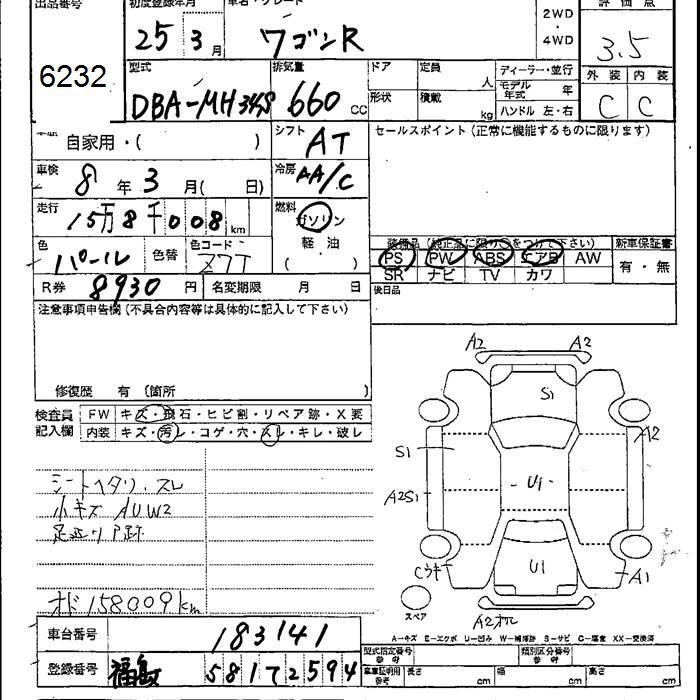 出品番号 初度登録年月 車名・グレード 2WD 評価点
25 3月 ワゴンR ・ 4WD 3.5
6232 型式 排気量 ドア 定員 人 ディーラー・並行 外装 内装
DBA-MH34S 660 CC 形状 積載 kg モデル年式 年 C C
ハンドル 左・右
車歴 自家用・( ) シフト AT セールスポイント(正常に機能するものに限ります)
車検 8年 3月( 日) 冷房 AA/C
走行 15万8千008km 燃料 ガソリン
軽・油
( )
色 パール 色替 色コード Z7T 装備品(純正品に限り○をつけて下さい) 新車保証書
PS PW ABS エアB AW 有・無
SR ナビ TV カワ
R券 8930円 名変期限 月 日 後日品
注意事項申告欄(不具合内容等は具体的に記入して下さい)
修復歴 有 (箇所 )
検査員記入欄 FW キズ・飛石・ヒビ割・リペア跡・X要
内装 キズ・汚レ・コゲ・穴・スレ・キレ・破レ
シートヘタリ、スレ
小キズ AUW2
足廻りP跡
オド158009km
A2 A2
S1
A2
S1
U1
A2S1
U1
Cウキ A1
スペア
A2オレ
A-キズ E-エクボ U-凹み W-補修跡 S-サビ C-腐食 XX-交換済
車台番号 183141 型式指定番号 参考 類別区分番号 参考
登録番号 福島 581 て 2594 車庫証明用 参考 長さ cm 幅 cm 高さ cm